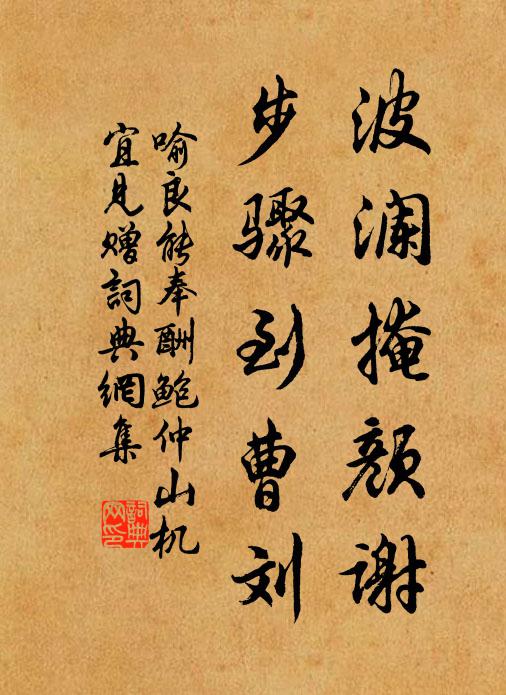 波澜掩颜谢
步骤到曹刘
喻良能奉酬鲍仲山机
宜见赠词典網集
詞典
网印